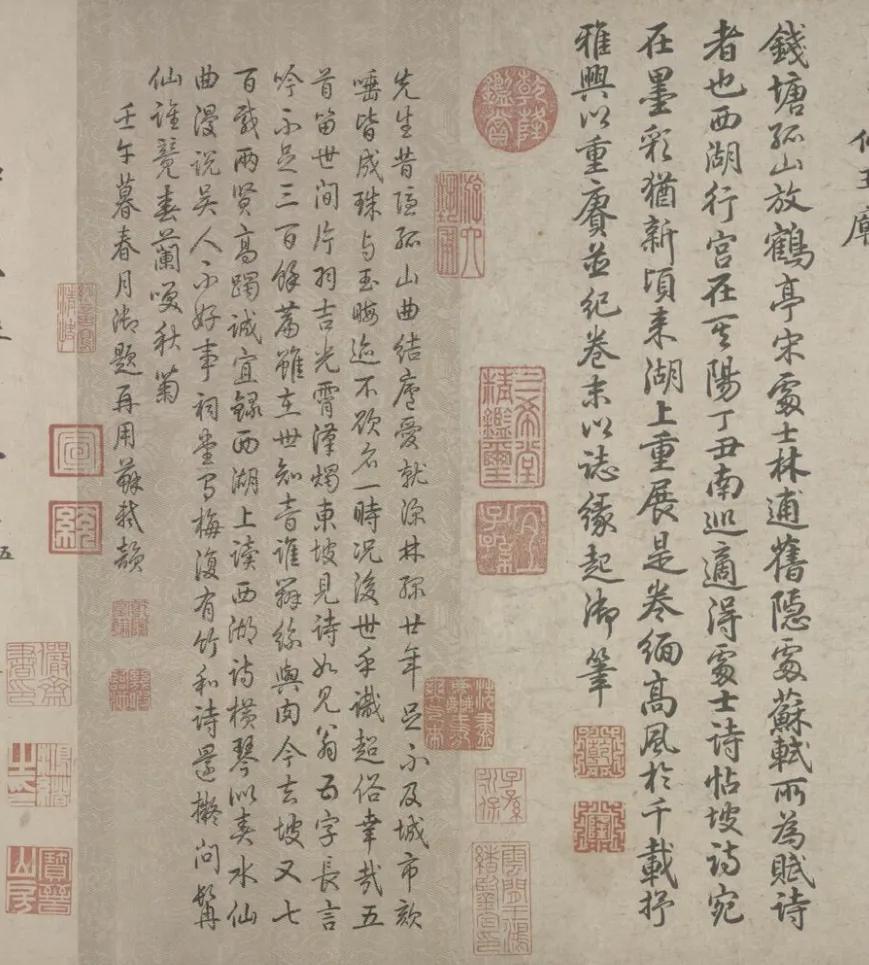 仙王廟
錢塘孤山放鶴亭宋處士林逋舊隱處蘇軾所為賦詩
者也西湖行宮在其陽丁丑南巡適得處士詩帖坡詩宛
在墨彩猶新頃來湖上重展是卷緬高風於千載抒
雅興以重賡並紀卷末以誌緣起御筆
乾隆鑑賞
三希堂精鑑璽
宜子孫
先生昔隱孤山曲結廬愛就深林綠廿年足不及城市欬
唾皆成珠与玉晦迹不欲名一時况後世乎譏超俗幸哉五
首留世間片羽吉光霄漢燭東坡見詩如見翁五字長言
吟不足三百餘篇雖在世知音誰辨絲與肉今去坡又七
百載兩賢高躅誠宜錄西湖上讀西湖詩橫琴似奏水仙
曲漫說吳人不好事祠堂写梅復有竹和詩還擬問髯
仙誰競春蘭嗅秋菊
壬午暮春月御題再用蘇軾韻
儼齋
寶晉山房
五